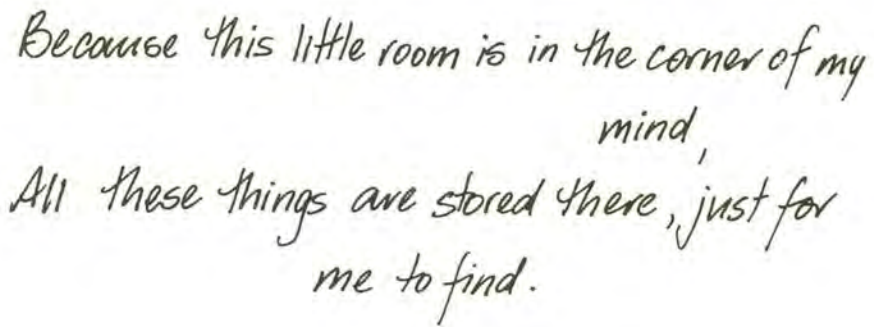 Because this little room is in the corner of my
mind,
All these things are stored there, just for
me to find.